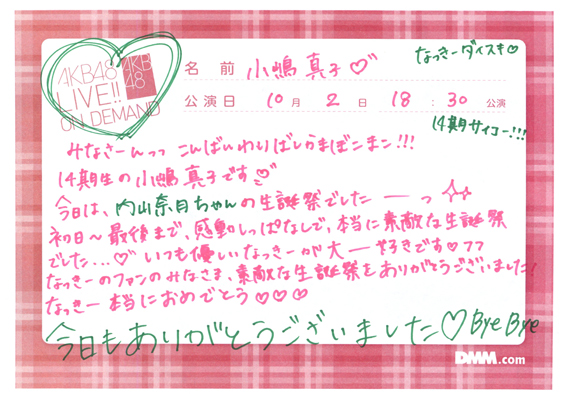 AKB48
LIVE!!
ON DEMAND
AKB
48
名前 小嶋真子♡
なっきーダイスキ♡
公演日 10月 2日 18:30 公演
14期サイコー!!!
みなさーんっっ こんばいわりばしかまぼこまこ!!!
14期生の小嶋真子です
今日は、内山奈月ちゃんの生誕祭でした ーっ
初日〜最後まで、感動しっぱなしで、本当に素敵な生誕祭
でした...♡ いつも優しいなっきーが大ー好きです♡フフ
なっきーのファンのみなさま、素敵な生誕祭をありがとうございました!
なっきー本当におめでとう♡♡♡
今日もありがとうございました♡ByeBye
DMM.com